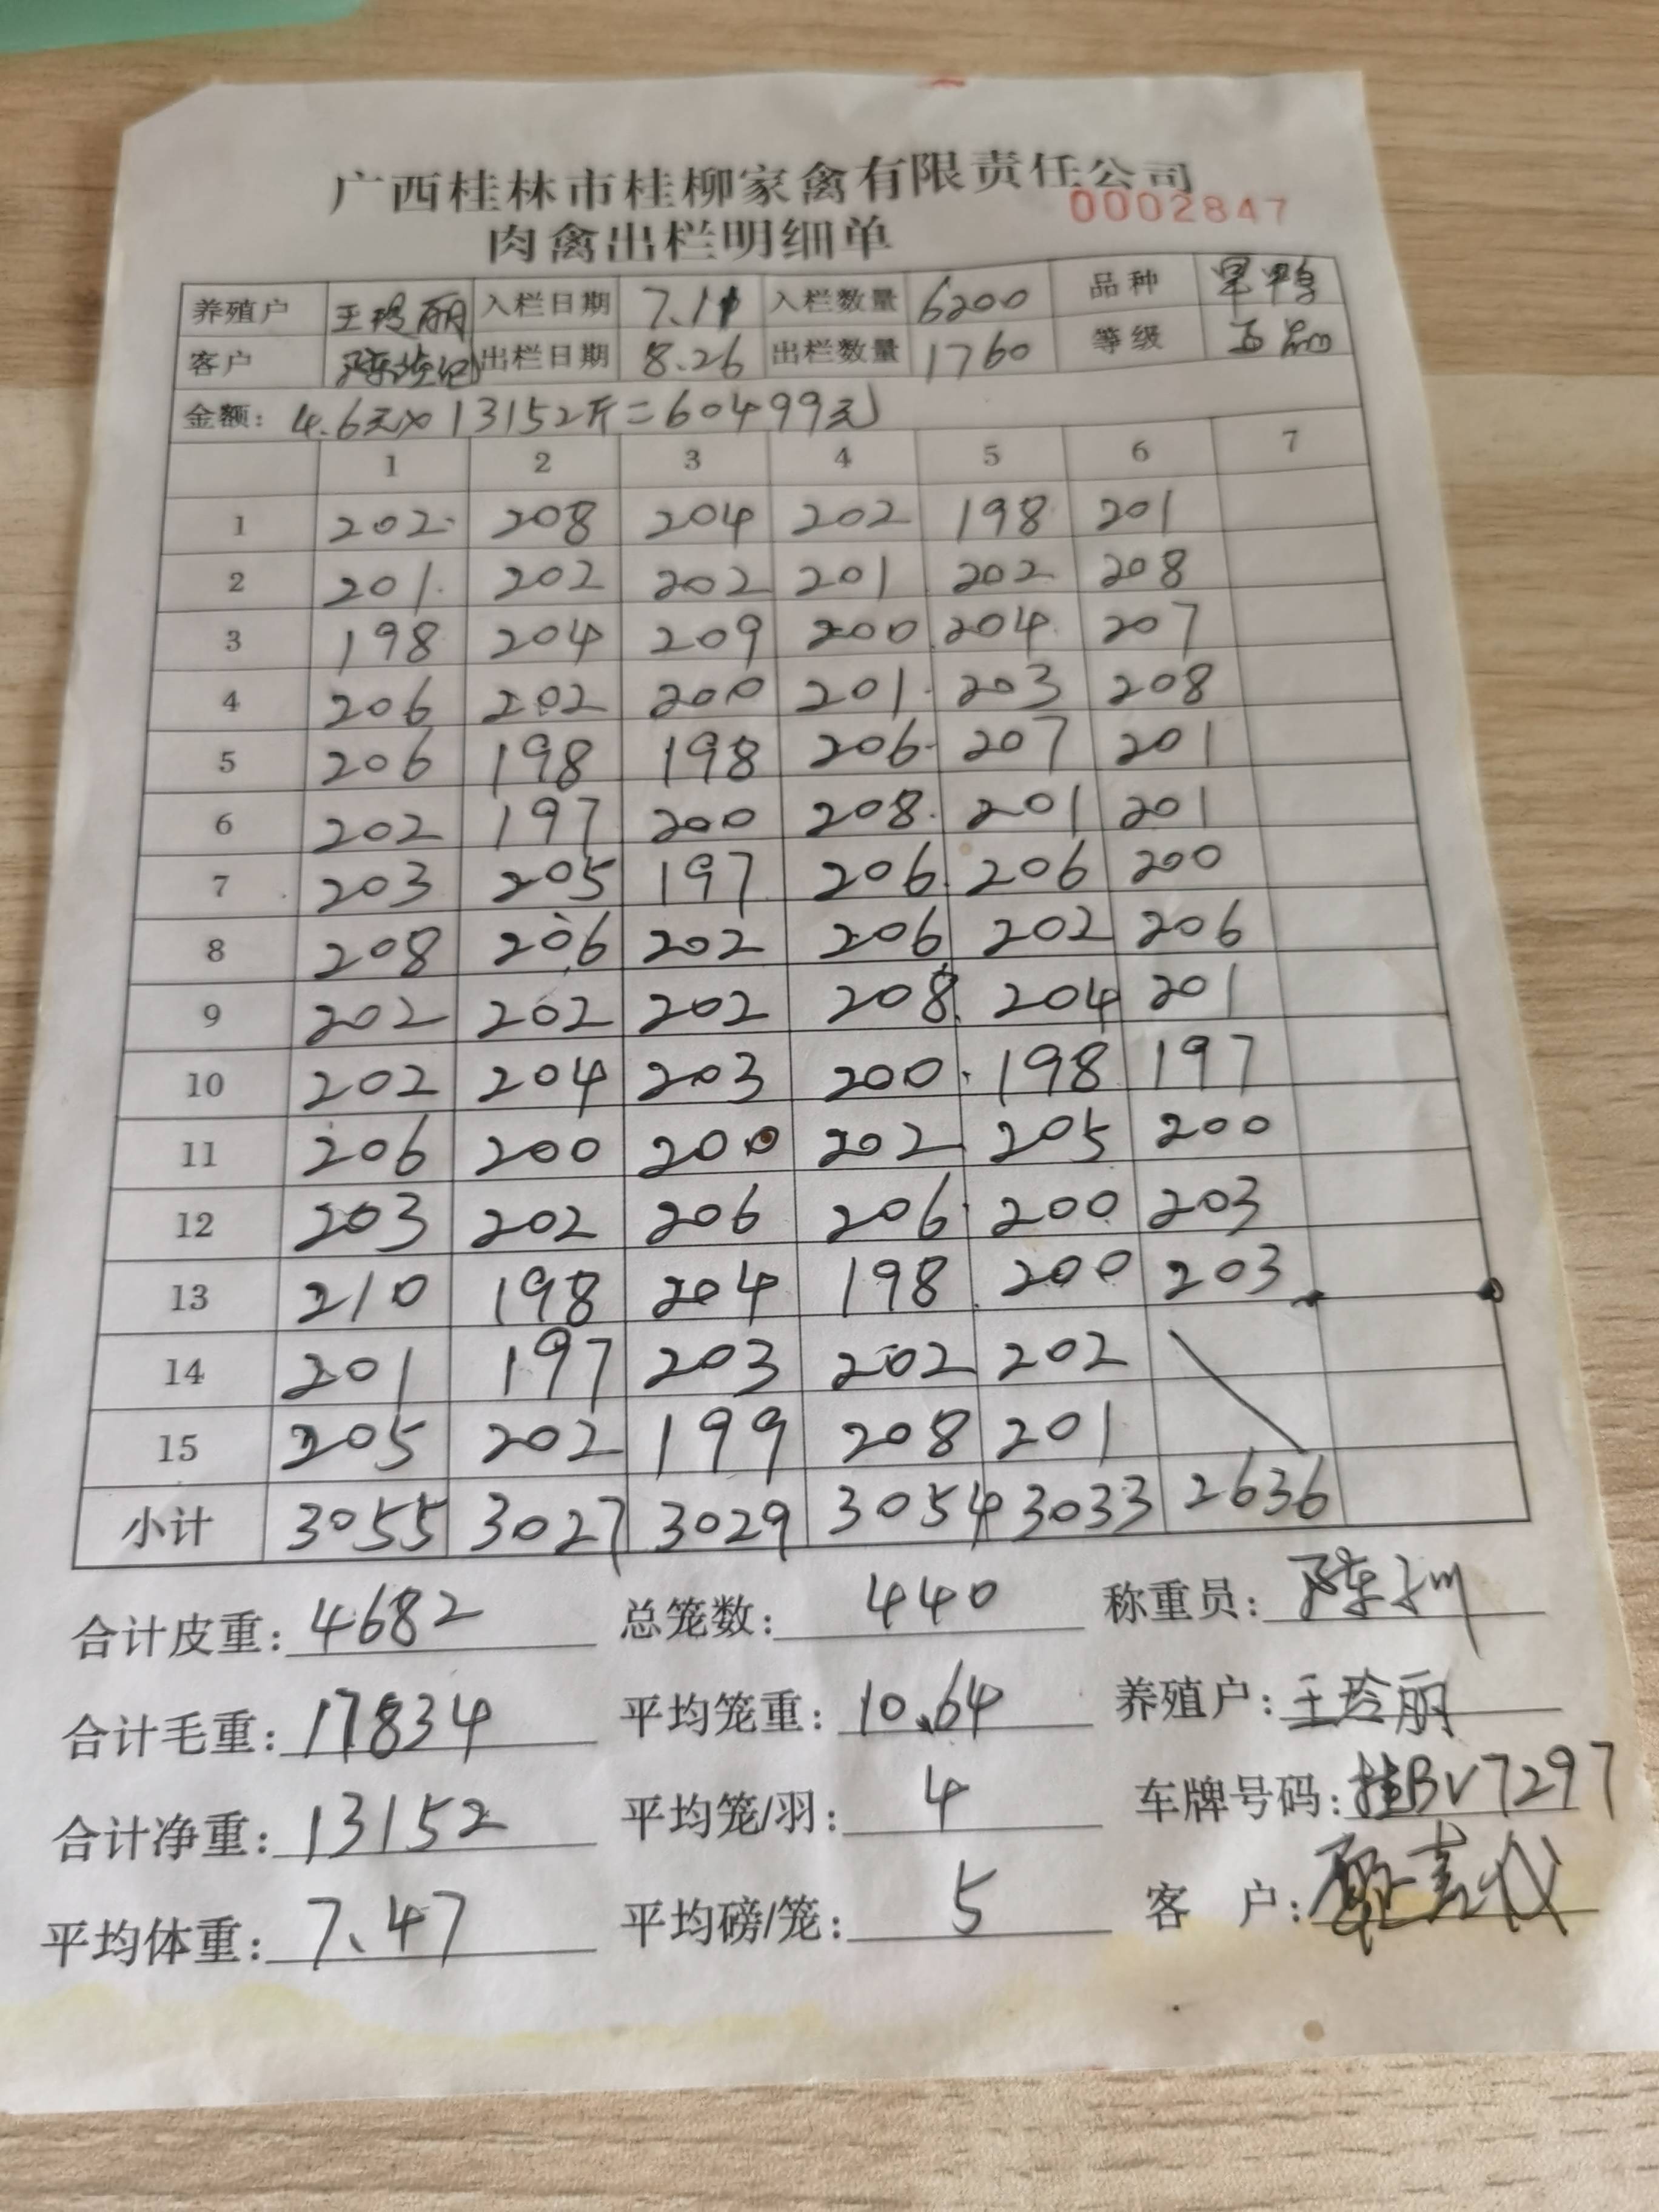 广西桂林市桂柳家禽有限责任公司
0002847
肉禽出栏明细单
养殖户 王玲丽 入栏日期 7.11 入栏数量 6200 品种 黑鸭
客户 出栏日期 8.26 出栏数量 1760 等级
金额: 4.6元×13152斤=60499元
1 2 3 4 5 6 7
1 202 208 204 202 198 201
2 201 202 202 201 202 208
3 198 204 209 200 204 207
4 206 202 200 201 203 208
5 206 198 198 206 207 201
6 202 197 200 208 201 201
7 203 205 197 206 206 200
8 208 206 202 206 202 206
9 202 202 202 208 204 201
10 202 204 203 200 198 197
11 206 200 200 202 205 200
12 203 202 206 206 200 203
13 210 198 204 198 200 203
14 201 197 203 202 202
15 205 202 199 208 201
小计 3055 3027 3029 3054 3033 2636
合计皮重: 4682 总笼数: 440 称重员:
合计毛重: 17834 平均笼重: 10.64 养殖户: 王玲丽
合计净重: 13152 平均笼/羽: 4 车牌号码: 桂BV7297
平均体重: 7.47 平均磅/笼: 5 客 户: